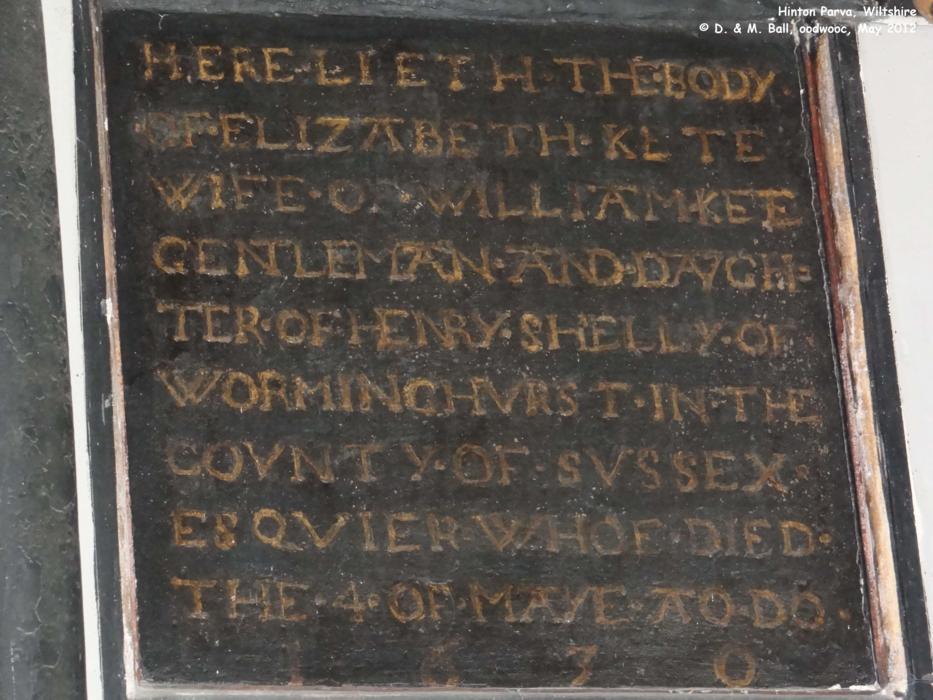 Hinton Parva, Wiltshire
© D. & M. Ball, oodwooc, May 2012
HERE·LIETH·THE·BODY·
OF·ELIZABETH·KETE
WIFE·OF·WILLIAM·KETE
GENTLEMAN·AND·DAVGH-
TER·OF·HENRY·SHELLY·OF
WORMINGHVRST·IN·THE
COVNTY·OF·SVSSEX·
ESQVIER·WHOE·DIED·
THE·4·OF·MAYE·AO·DO·
1630